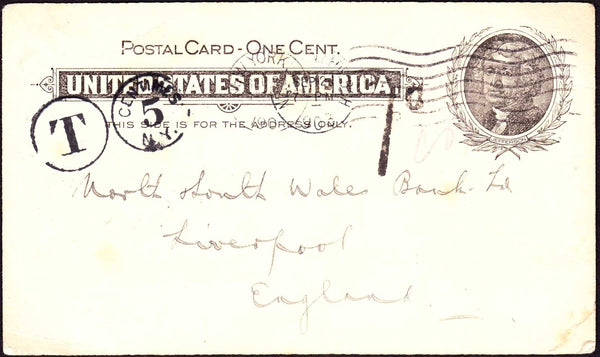 POSTAL CARD - ONE CENT.
UNITED STATES OF AMERICA.
THIS SIDE IS FOR THE ADDRESS ONLY.
T
CENTIMES
5
N.Y.
YORK
North & South Wales Bank Ld
Liverpool
England
JEFFERSON